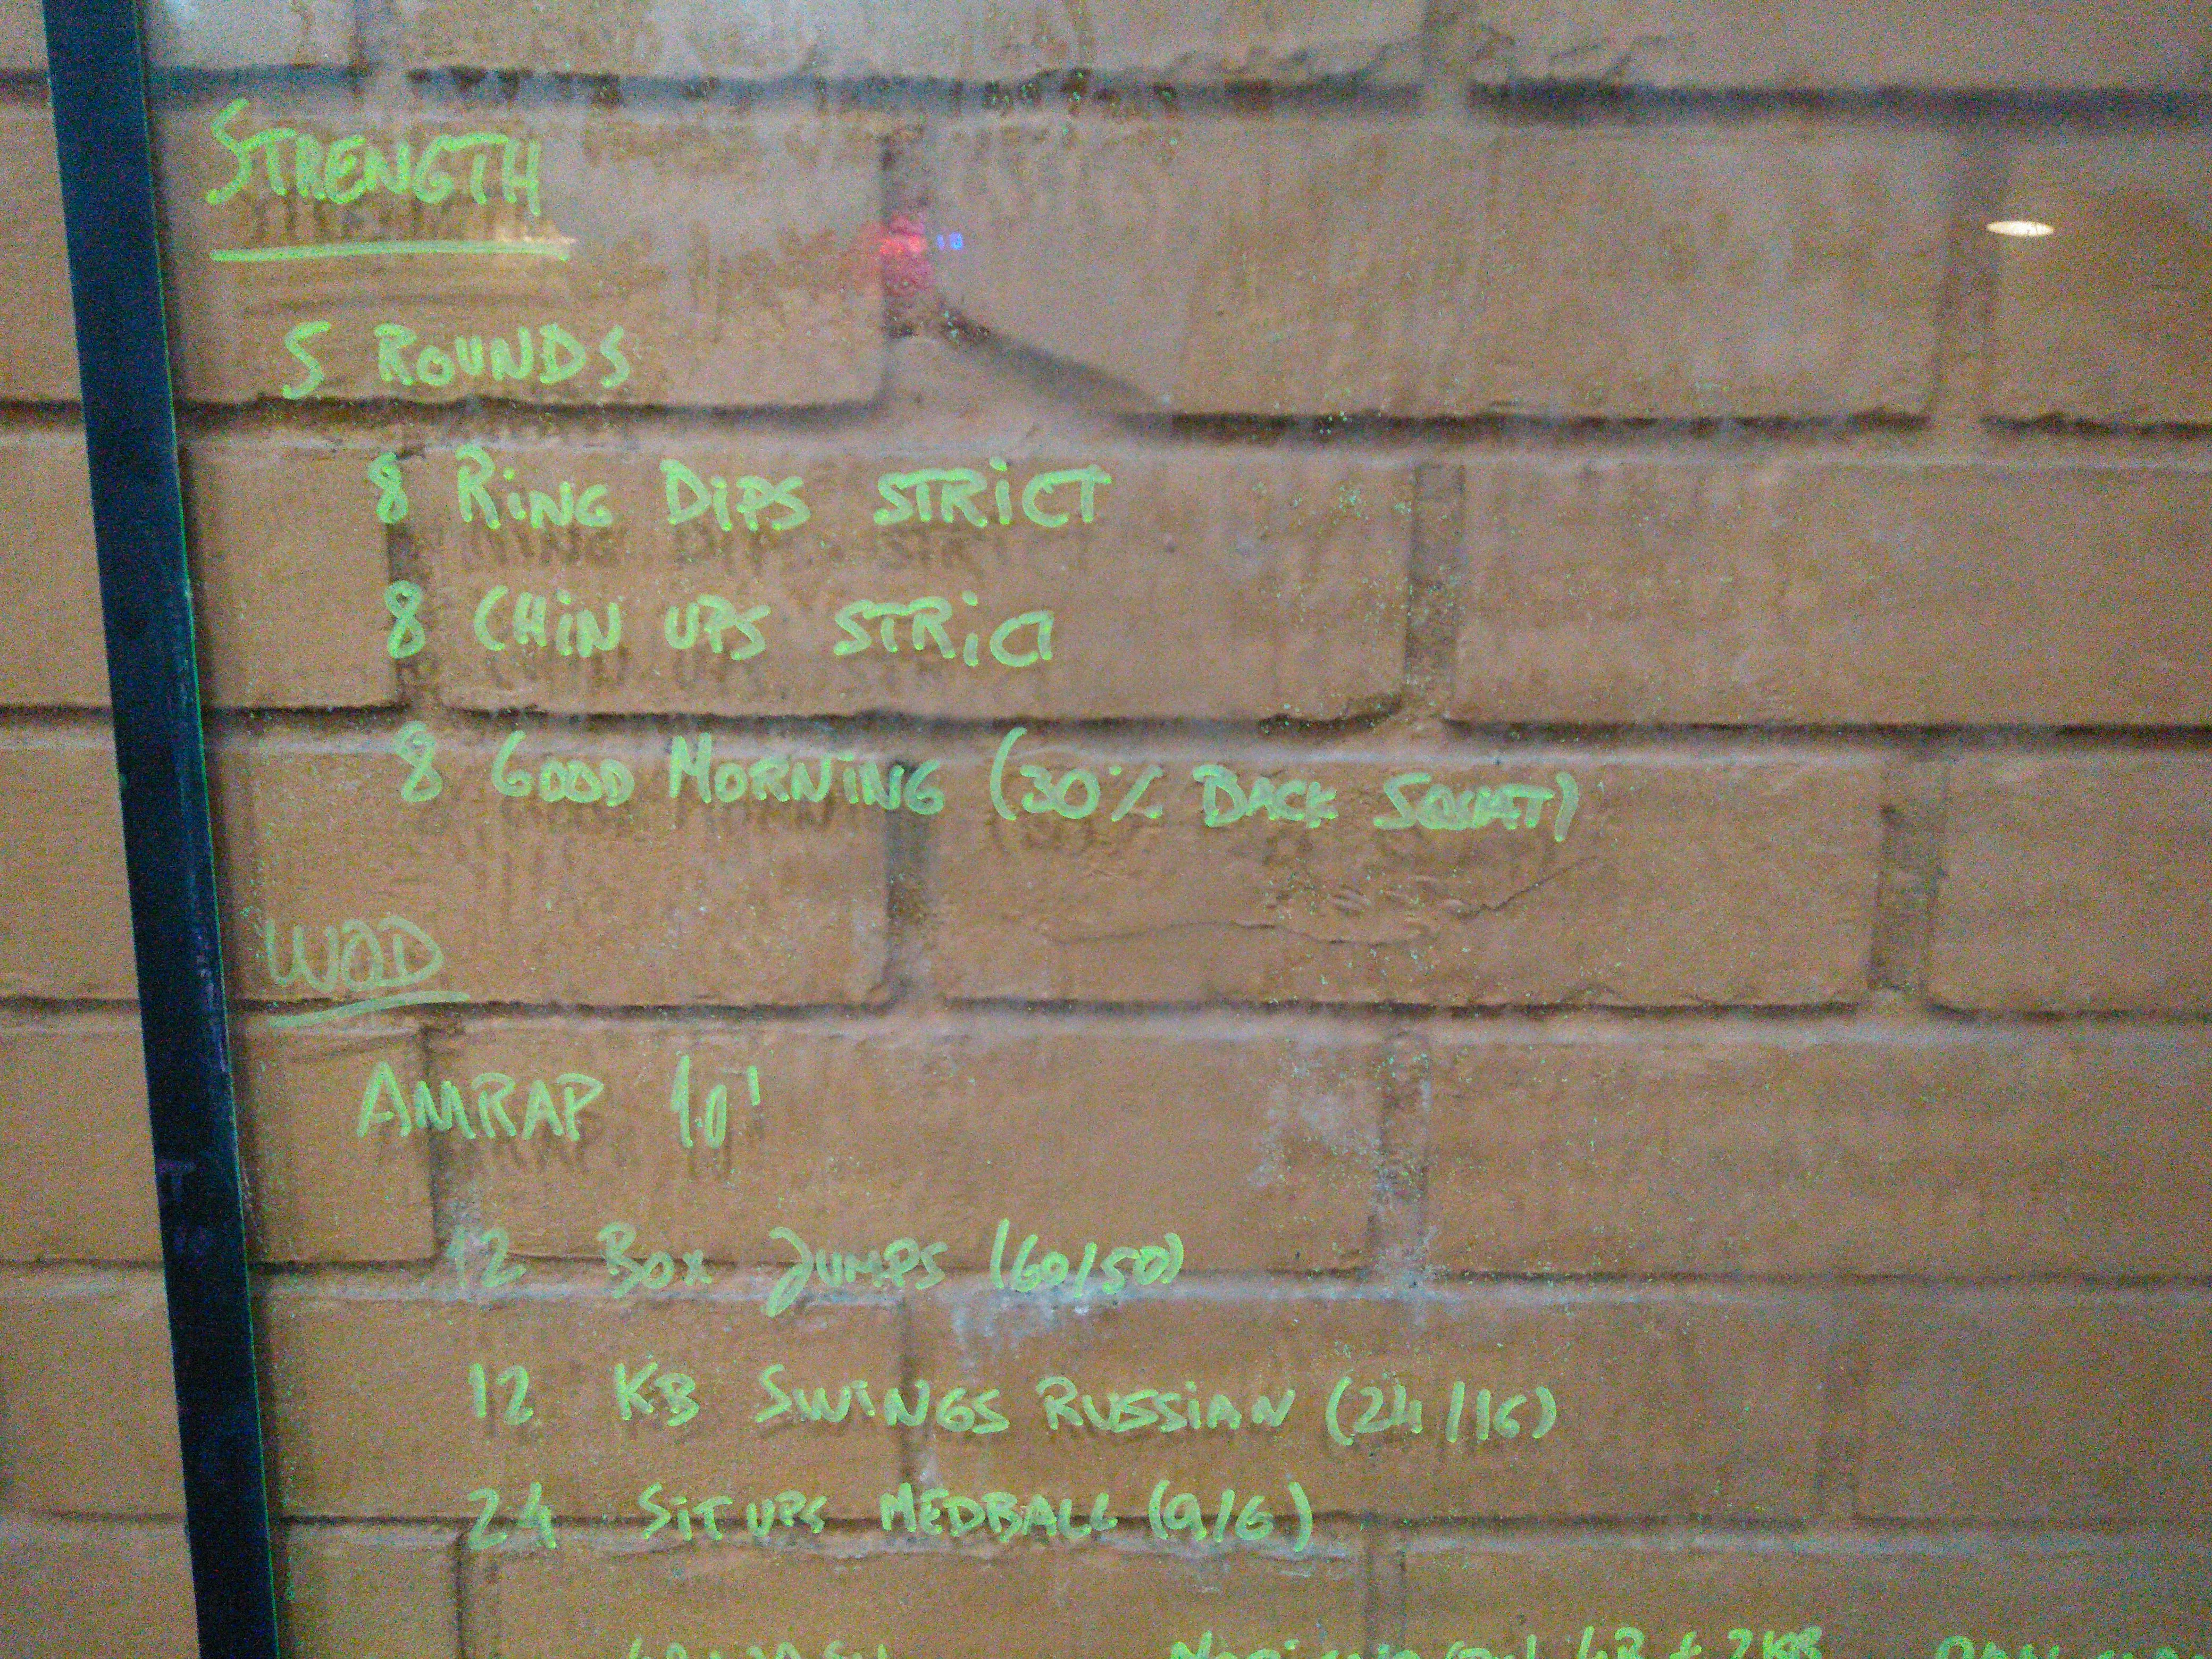 STRENGTH
5 ROUNDS
8 RiNG DiPS STRiCT
8 CHiN UPS STRiCT
8 GOOD MORNiNG (30% BACK SQUAT)
WOD
AMRAP 10'
12 BOX JUMPS (60/50)
12 KB SWiNGS RUSSiAN (24/16)
24 SiT UPS MEDBALL (9/6)